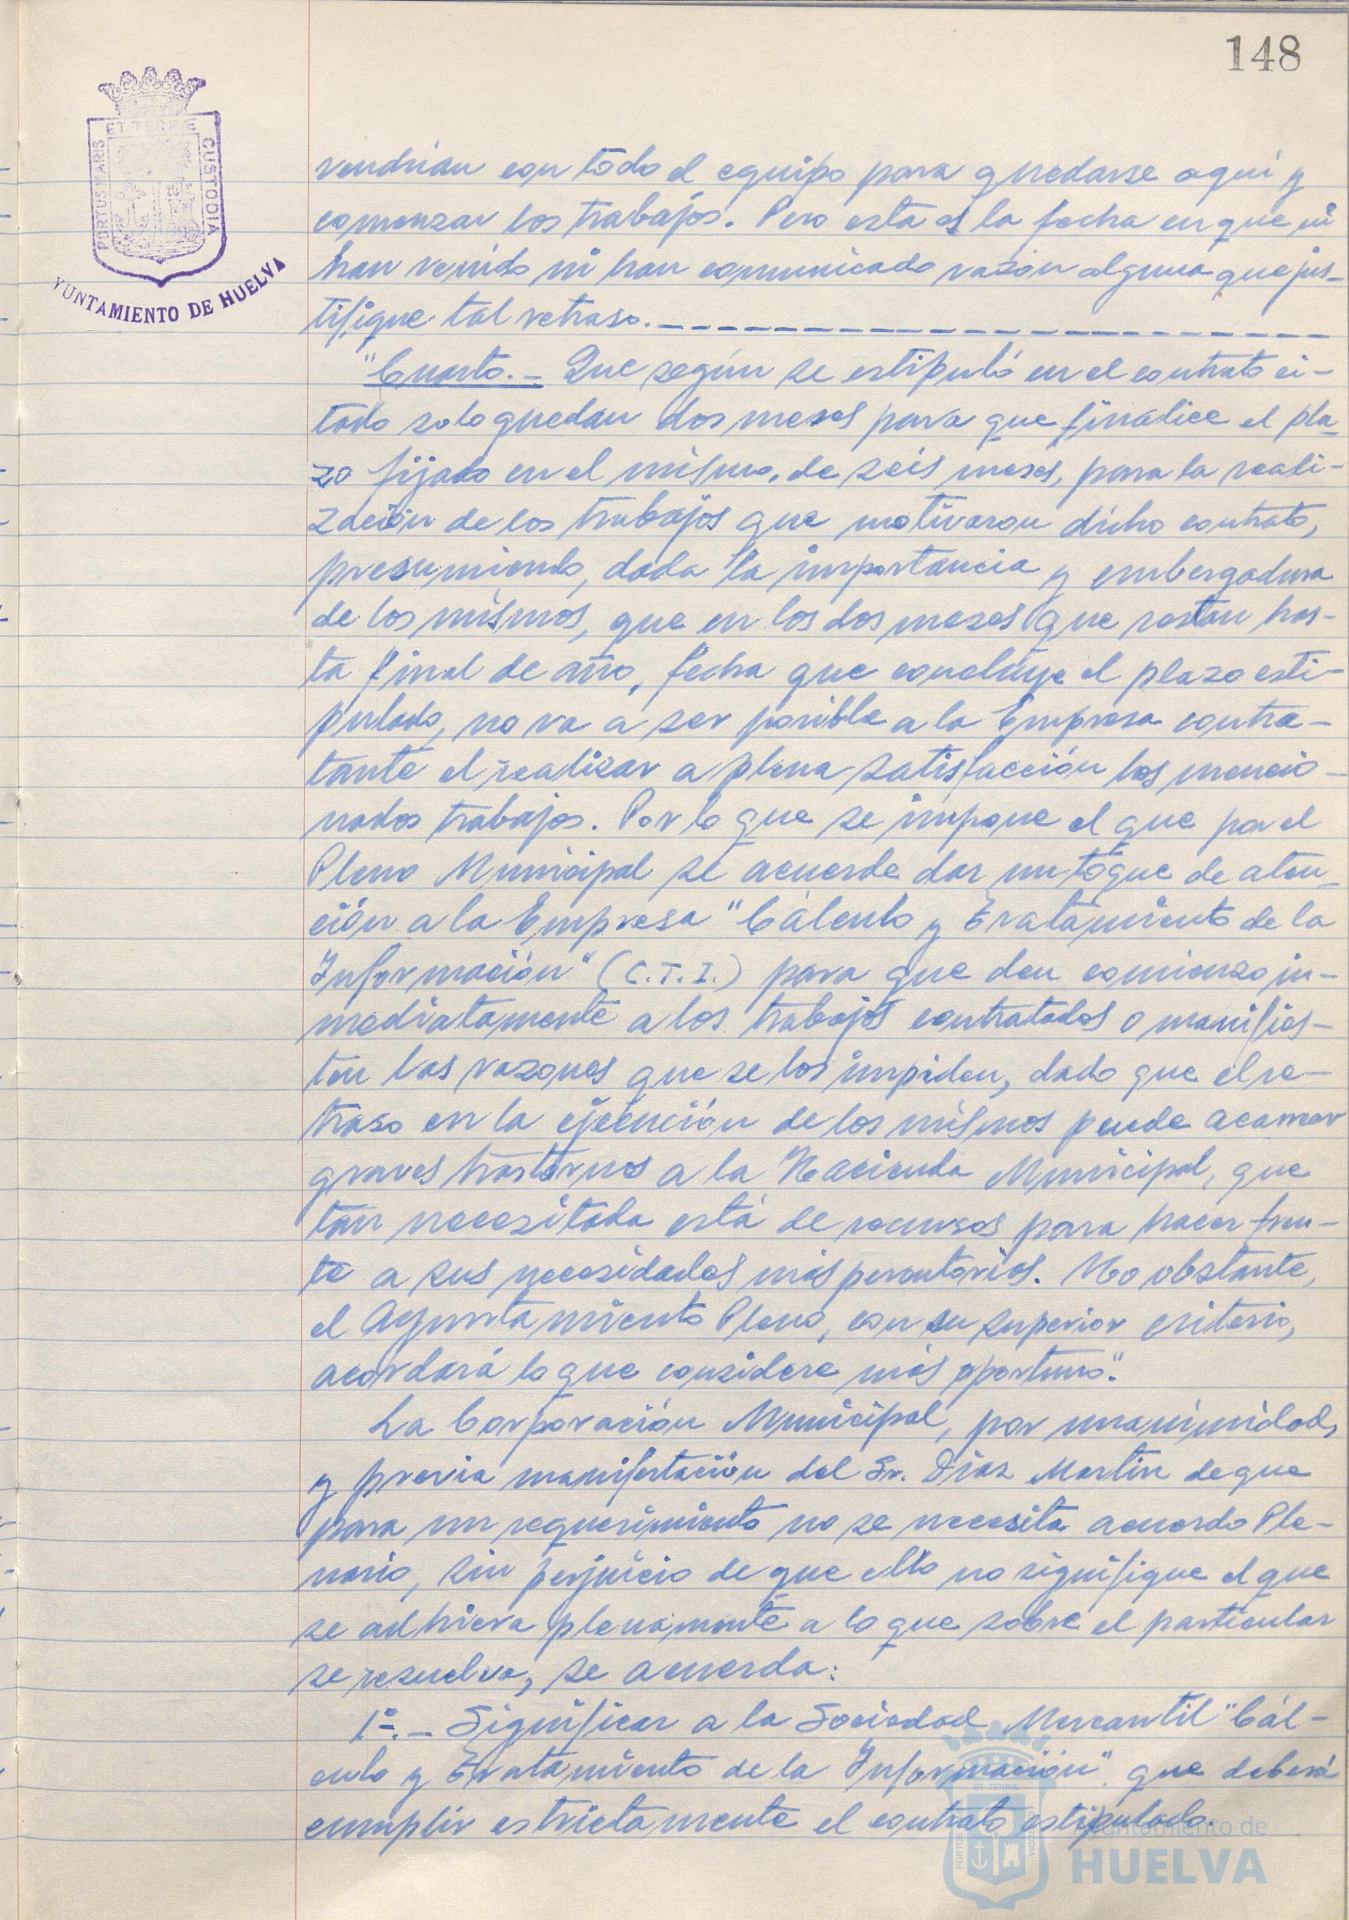 148
PORTUS MARIS
ET TERRÆ
CUSTODIA
YUNTAMIENTO DE HUELVA
vendrían con todo el equipo para quedarse aquí y
comenzar los trabajos. Pero esta es la fecha en que ni
han venido ni han comunicado razón alguna que jus-
tifique tal retraso.
"Cuarto.- Que según se estipuló en el contrato ci-
tado solo quedan dos meses para que finalice el pla-
zo fijado en el mismo, de seis meses, para la reali-
zación de los trabajos que motivaron dicho contrato,
presumiendo, dada la importancia y embergadura
de los mismos, que en los dos meses que restan has-
ta final de año, fecha que concluye el plazo esti-
pulado, no va a ser posible a la Empresa contra-
tante el realizar a plena satisfacción los mencio-
nados trabajos. Por lo que se impone el que por el
Pleno Municipal se acuerde dar un toque de aten-
ción a la Empresa "Cálculo y Tratamiento de la
Información" (C.T.I.) para que den comienzo in-
mediatamente a los trabajos contratados o manifies-
ten las razones que se los impiden, dado que el re-
traso en la ejecución de los mismos puede acarrear
graves trastornos a la Hacienda Municipal, que
tan necesitada está de recursos para hacer fren-
te a sus necesidades más perentorias. No obstante,
el Ayuntamiento Pleno, con su superior criterio,
acordará lo que considere más oportuno".
La Corporación Municipal, por unanimidad,
y previa manifestación del Sr. Díaz Martín de que
para un requerimiento no se necesita acuerdo Ple-
nario, sin perjuicio de que ello no signifique el que
se adhiera plenamente a lo que sobre el particular
se resuelva, se acuerda:
1º.- Significar a la Sociedad Mercantil "Cál-
culo y Tratamiento de la Información" que deberá
cumplir estrictamente el contrato estipulado.
Ayuntamiento de
HUELVA